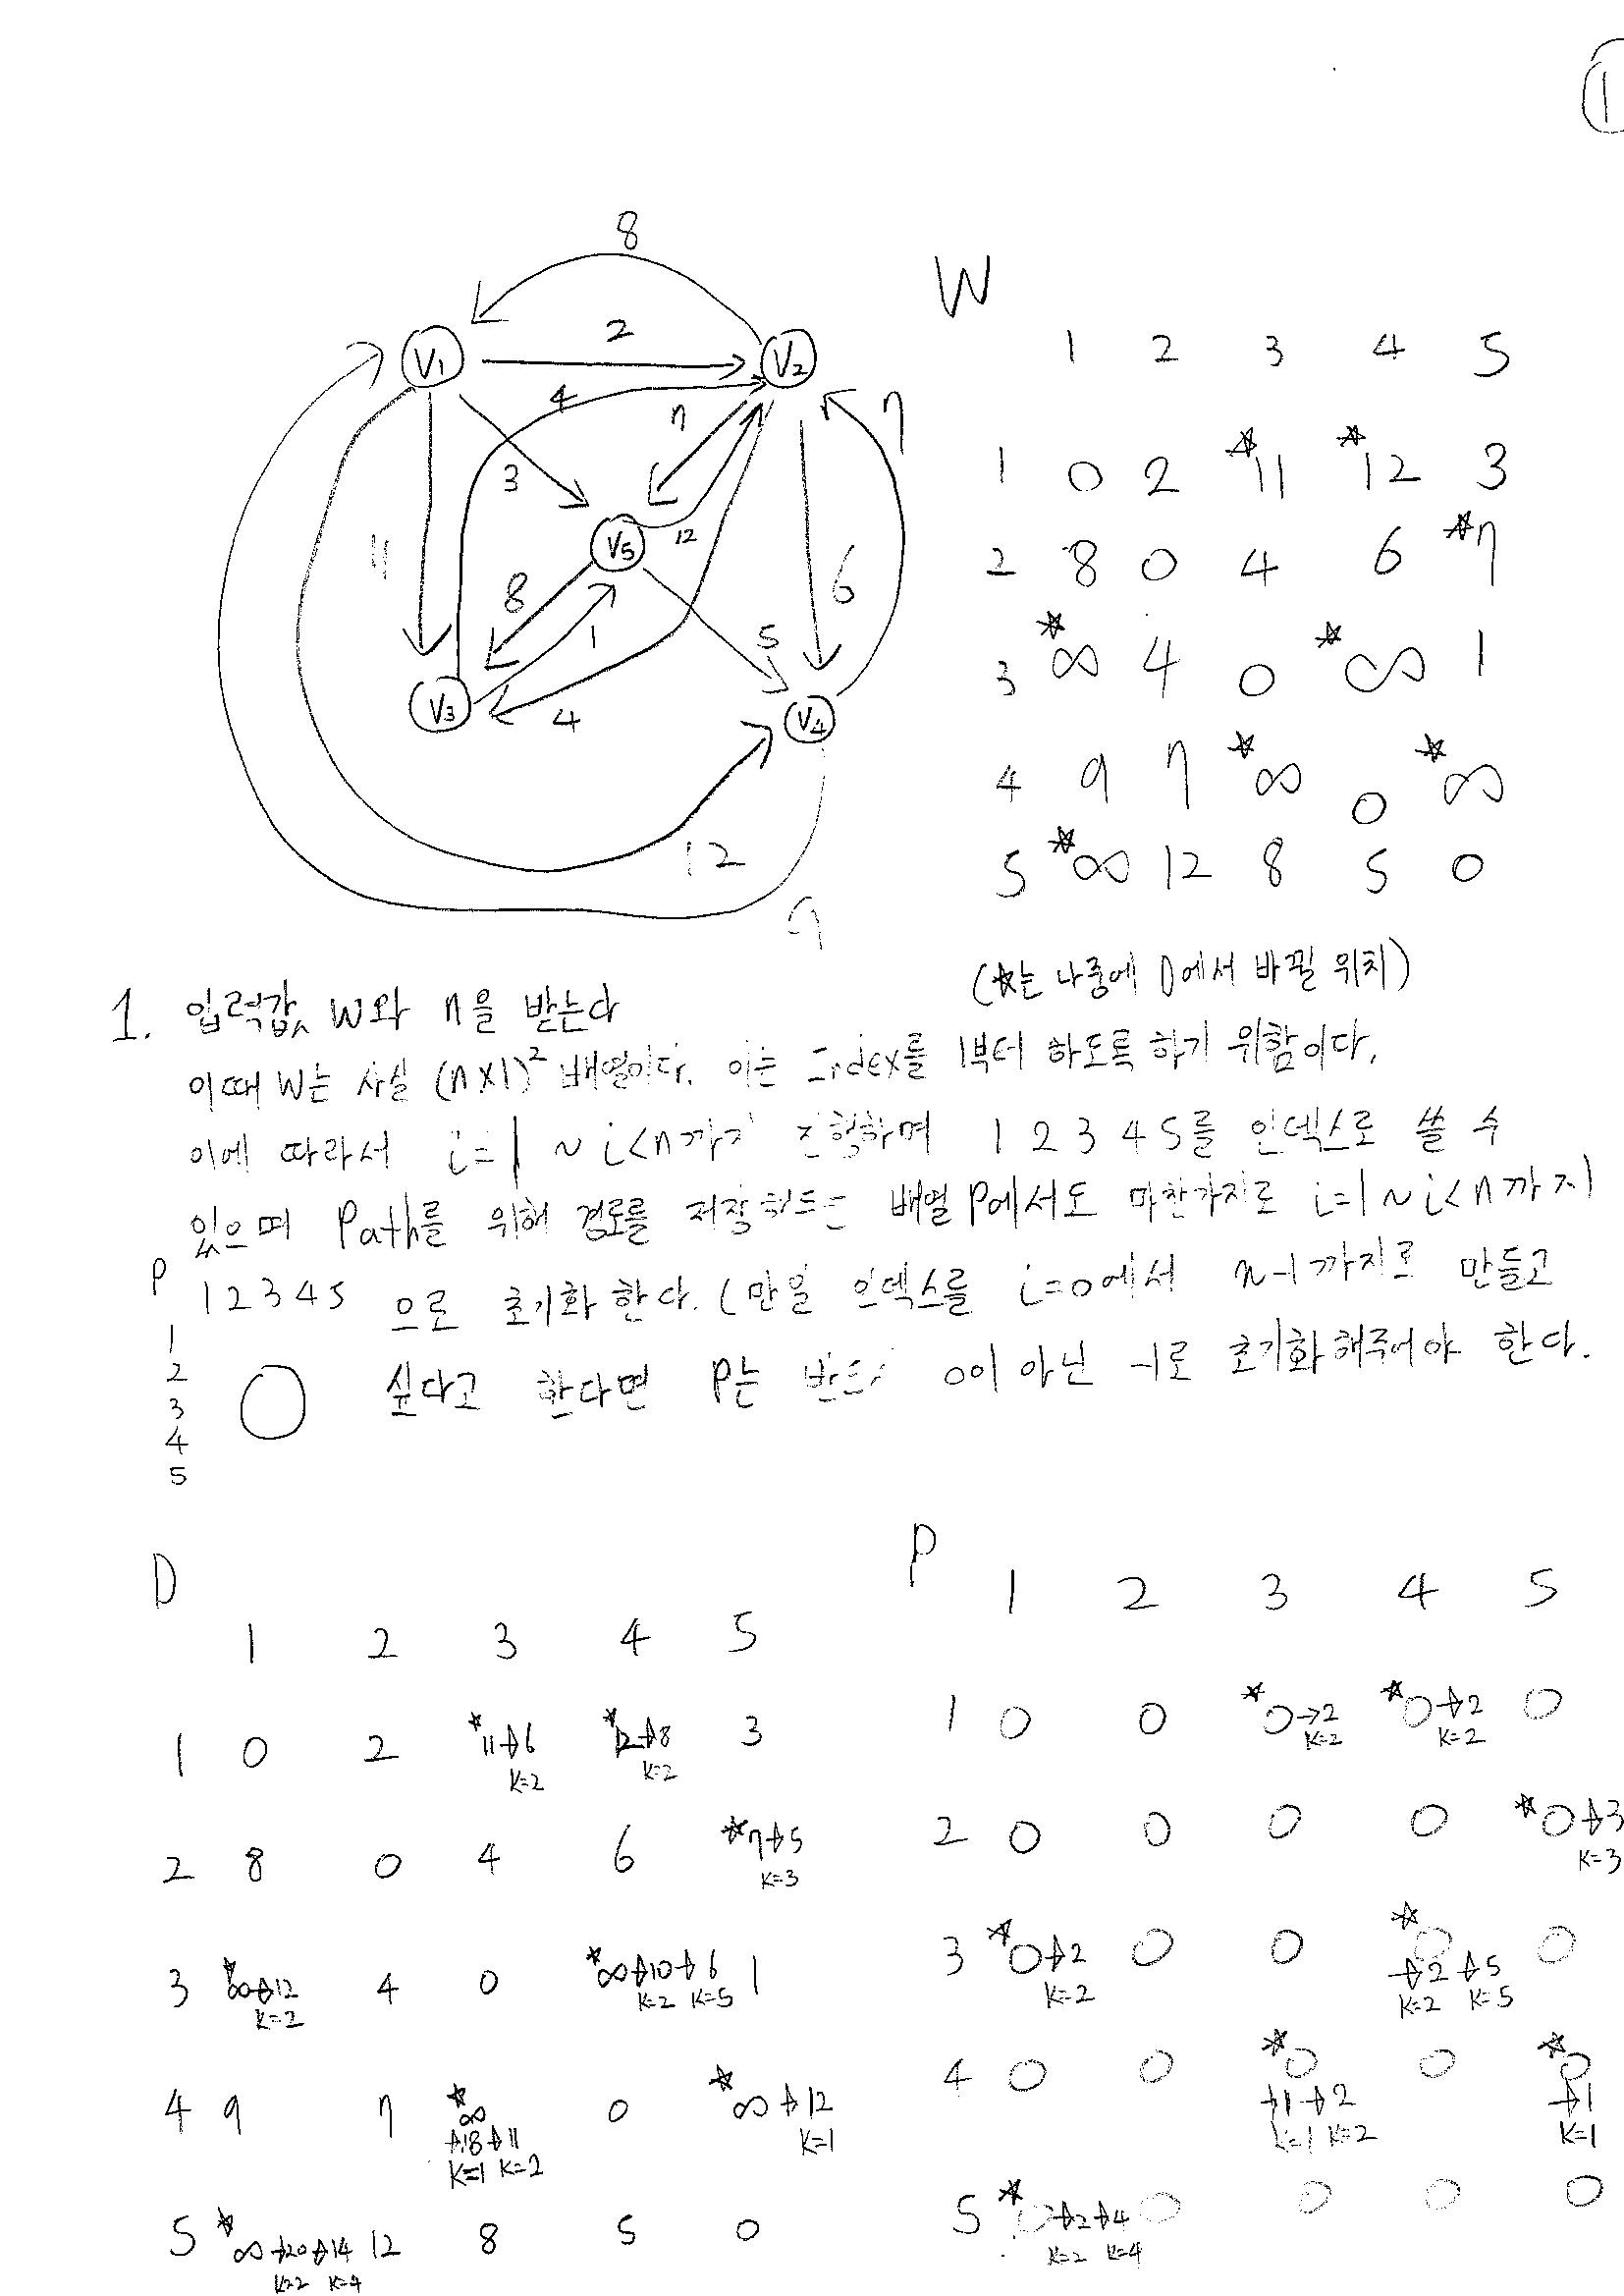 1
8
V1
2
V2
4
7
7
3
V5
12
11
8
1
5
6
V3
4
V4
12
9
W
1 2 3 4 5
1 0 2 ☆11 ☆12 3
2 8 0 4 6 ☆7
3 ☆∞ 4 0 ☆∞ 1
4 9 7 ☆∞ 0 ☆∞
5 ☆∞ 12 8 5 0
(☆는 나중에 D에서 바뀔 위치)
1. 입력값 W와 n을 받는다
이때 W는 사실 (n×1)² 배열이다. 이는 Index를 1부터 하도록 하기 위함이다.
이에 따라서 i=1 ~ i<n까지 진행하며 1 2 3 4 5를 인덱스로 쓸 수
있으며 Path를 위해 경로를 저장하는 배열 P에서도 마찬가지로 i=1~i<n까지
으로 초기화 한다. (만일 인덱스를 i=0에서 n-1까지로 만들고
싶다고 한다면 P는 0이 아닌 -1로 초기화해주어야 한다.
P
1 2 3 4 5
1
2
3 0
4
5
D
1 2 3 4 5
1 0 2 ☆11→6 ☆12→8 3
k=2 k=2
2 8 0 4 6 ☆7→5
k=3
3 ☆∞→12 4 0 ☆∞→10→6 1
k=2 k=2 k=5
4 9 7 ☆∞ 0 ☆∞→12
→18→11 k=1
k=1 k=2
5 ☆∞→20→14 12 8 5 0
k=2 k=4
P
1 2 3 4 5
1 0 0 ☆0→2 ☆0→2 0
k=2 k=2
2 0 0 0 0 ☆0→3
k=3
3 ☆0→2 0 0 ☆0 0
k=2 →2→5
k=2 k=5
4 0 0 ☆0 0 ☆0
→1→2 →1
k=1 k=2 k=1
5 ☆0→2→4 0 0 0 0
k=2 k=4